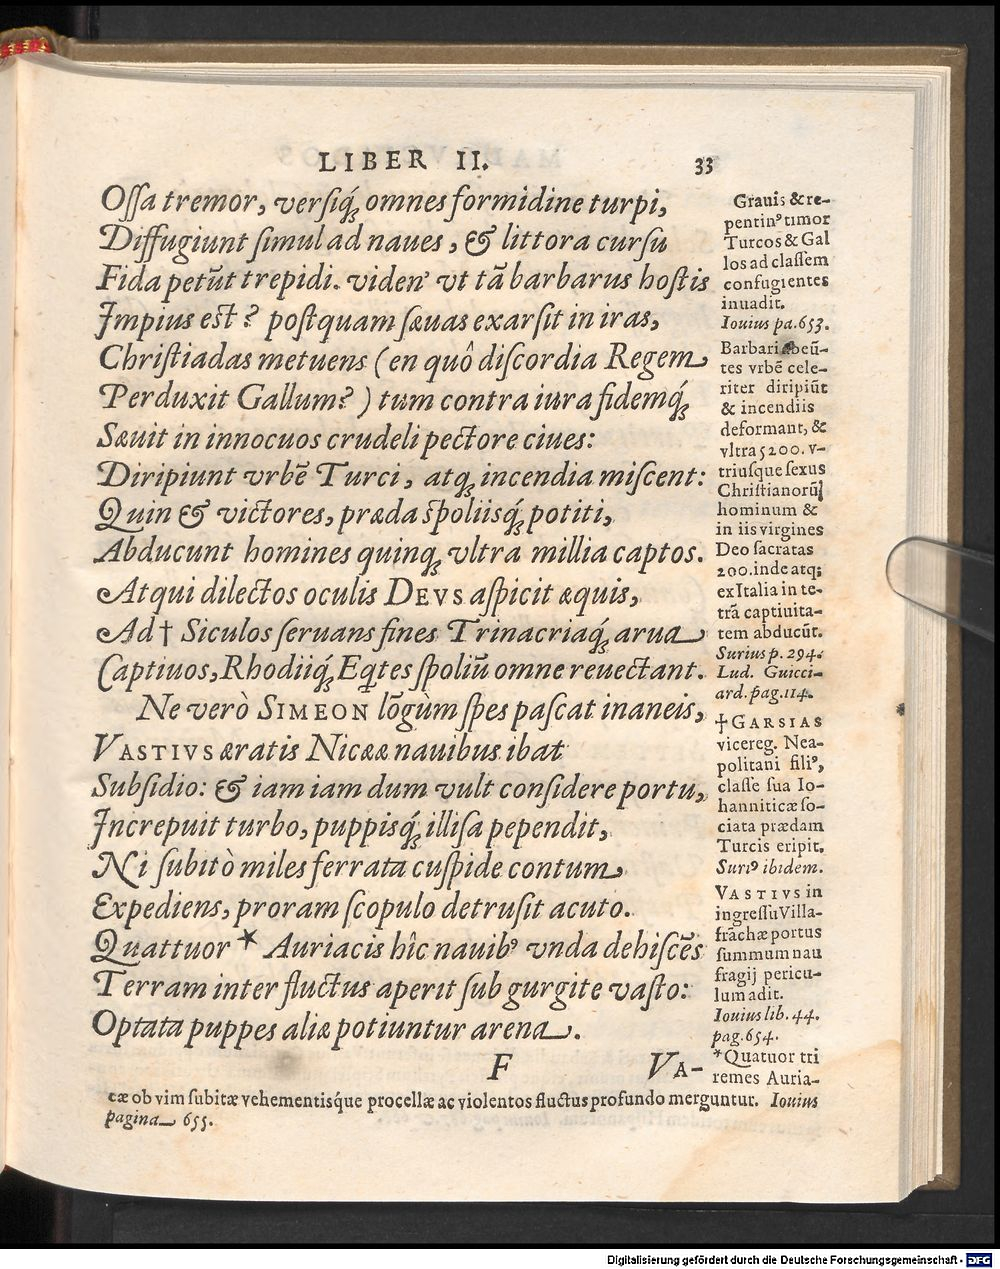 LIBER II. 33
Ossa tremor, versiq́; omnes formidine turpi,
Diffugiunt simul ad naues, & littora cursu
Fida petūt trepidi. viden' vt tā barbarus hostis
Impius est? postquam sæuas exarsit in iras,
Christiadas metuens (en quô discordia Regem
Perduxit Gallum?) tum contra iura fidemq́;
Sæuit in innocuos crudeli pectore ciues:
Diripiunt vrbē Turci, atq; incendia miscent:
Quin & victores, præda spoliisq́; potiti,
Abducunt homines quinq; vltra millia captos.
Atqui dilectos oculis DEVS aspicit æquis,
Ad † Siculos seruans fines Trinacriaq́; arua
Captiuos, Rhodiiq́; Eqtes spoliū omne reuectant.
Ne verò SIMEON lōgùm spes pascat inaneis,
VASTIVS æratis Nicææ nauibus ibat
Subsidio: & iam iam dum vult considere portu,
Increpuit turbo, puppisq́; illisa pependit,
Ni subitò miles ferrata cuspide contum
Expediens, proram scopulo detrusit acuto.
Quattuor * Auriacis hîc nauibꝰ vnda dehiscēs
Terram inter fluctus aperit sub gurgite vasto:
Optata puppes aliæ potiuntur arena.
F VA-
Grauis & re-
pentinꝰ timor
Turcos & Gal
los ad classem
confugientes
inuadit.
Iouius pa. 653.
Barbari abeū-
tes vrbē cele-
riter diripiūt
& incendiis
deformant, &
vltra 5200. v-
triusque sexus
Christianorū
hominum &
in iis virgines
Deo sacratas
200. inde atq;
ex Italia in te-
trā captiuita-
tem abducūt.
Surius p. 294.
Lud. Guicci-
ard. pag. 114.
† GARSIAS
vicereg. Nea-
politani filiꝰ,
classe sua Io-
hanniticæ so-
ciata prædam
Turcis eripit.
Suriꝰ ibidem.
VASTIVS in
ingressu Villa-
frāchæ portus
summum nau
fragij pericu-
lum adit.
Iouius lib. 44.
pag. 654.
* Quatuor tri
remes Auria-
cæ ob vim subitæ vehementisq́ue procellæ ac violentos fluctus profundo merguntur. Iouius
pagina 655.
Digitalisierung gefördert durch die Deutsche Forschungsgemeinschaft - DFG